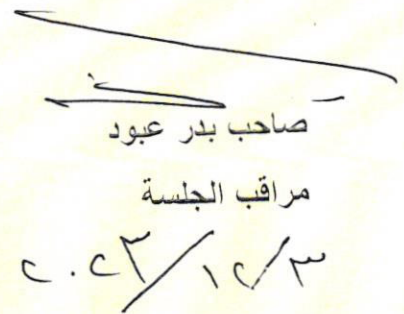 صاحب بدر عبود
مراقب الجلسة
٢٠٢٣/١٢/٣